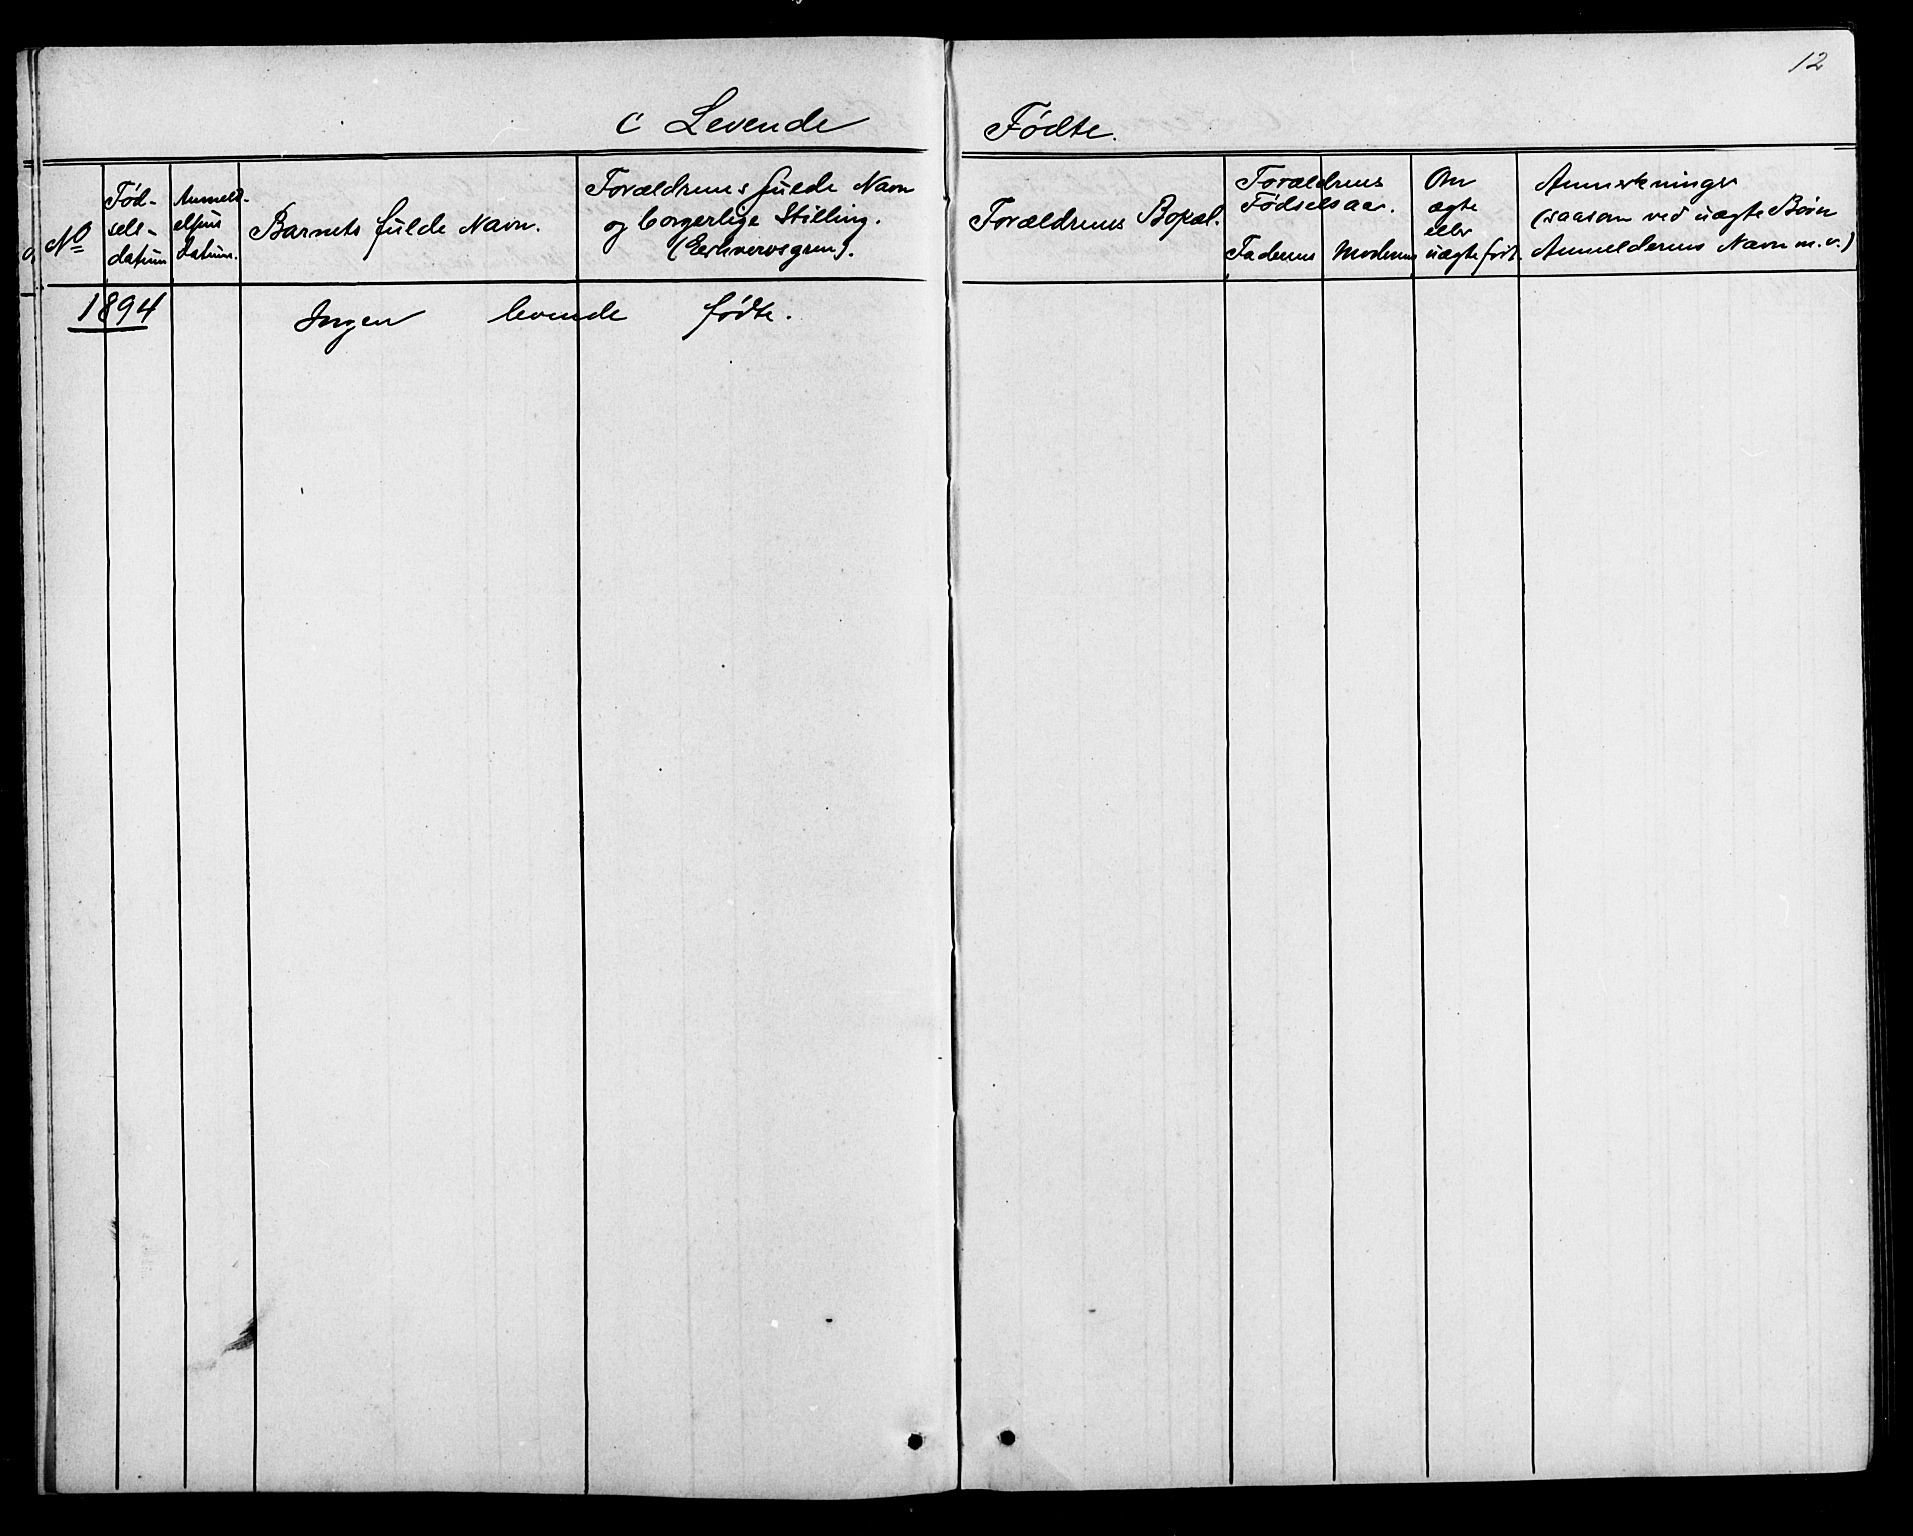 12
C Levende Fødte.
No
Fød-
sels-
datum
Anmeld-
elsens
datum.
Barnets fulde Navn.
Forældrenes fulde Navn
og borgerlige Stilling.
(Erhvervsgren).
Forældrenes Bopæl.
Forældrenes
Fødselsaar.
Faderens
Moderens
Om
ægte
eller
uægte født.
Anmerkninger
(saasom ved uægte Børn
Anmelderens Navn m.v.)
1894 Ingen levende fødte.